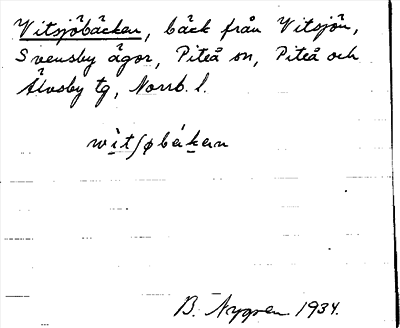 Vitsjöbäcken, bäck från Vitsjön,
Svensby ägor, Piteå sn, Piteå och
Älvsby tg, Norrb. l.
witʃøbäkan
B. Nygren 1934.